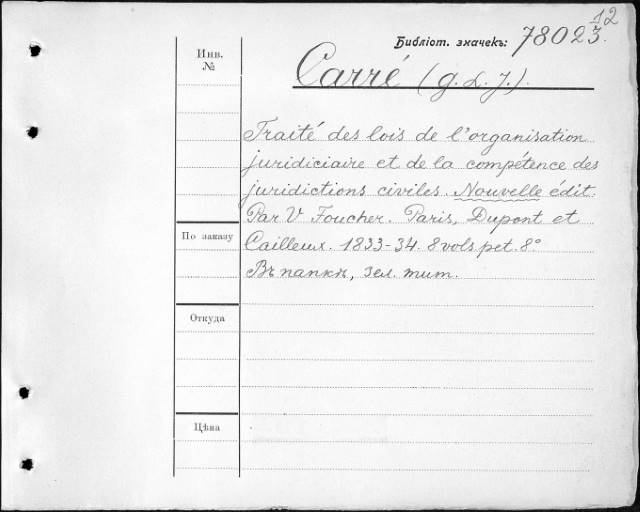 Библіот. значекъ: 78023.
12
Инв.
№
Carré (G. L. J.).
Traité des lois de l'organisation
juridiciaire et de la compétence des
juridictions civiles. Nouvelle édit.
Par V Foucher. Paris, Dupont et
По заказу
Cailleux. 1833-34. 8 vols pet. 8°
Въ папкѣ, зел. тит.
Откуда
Цѣна